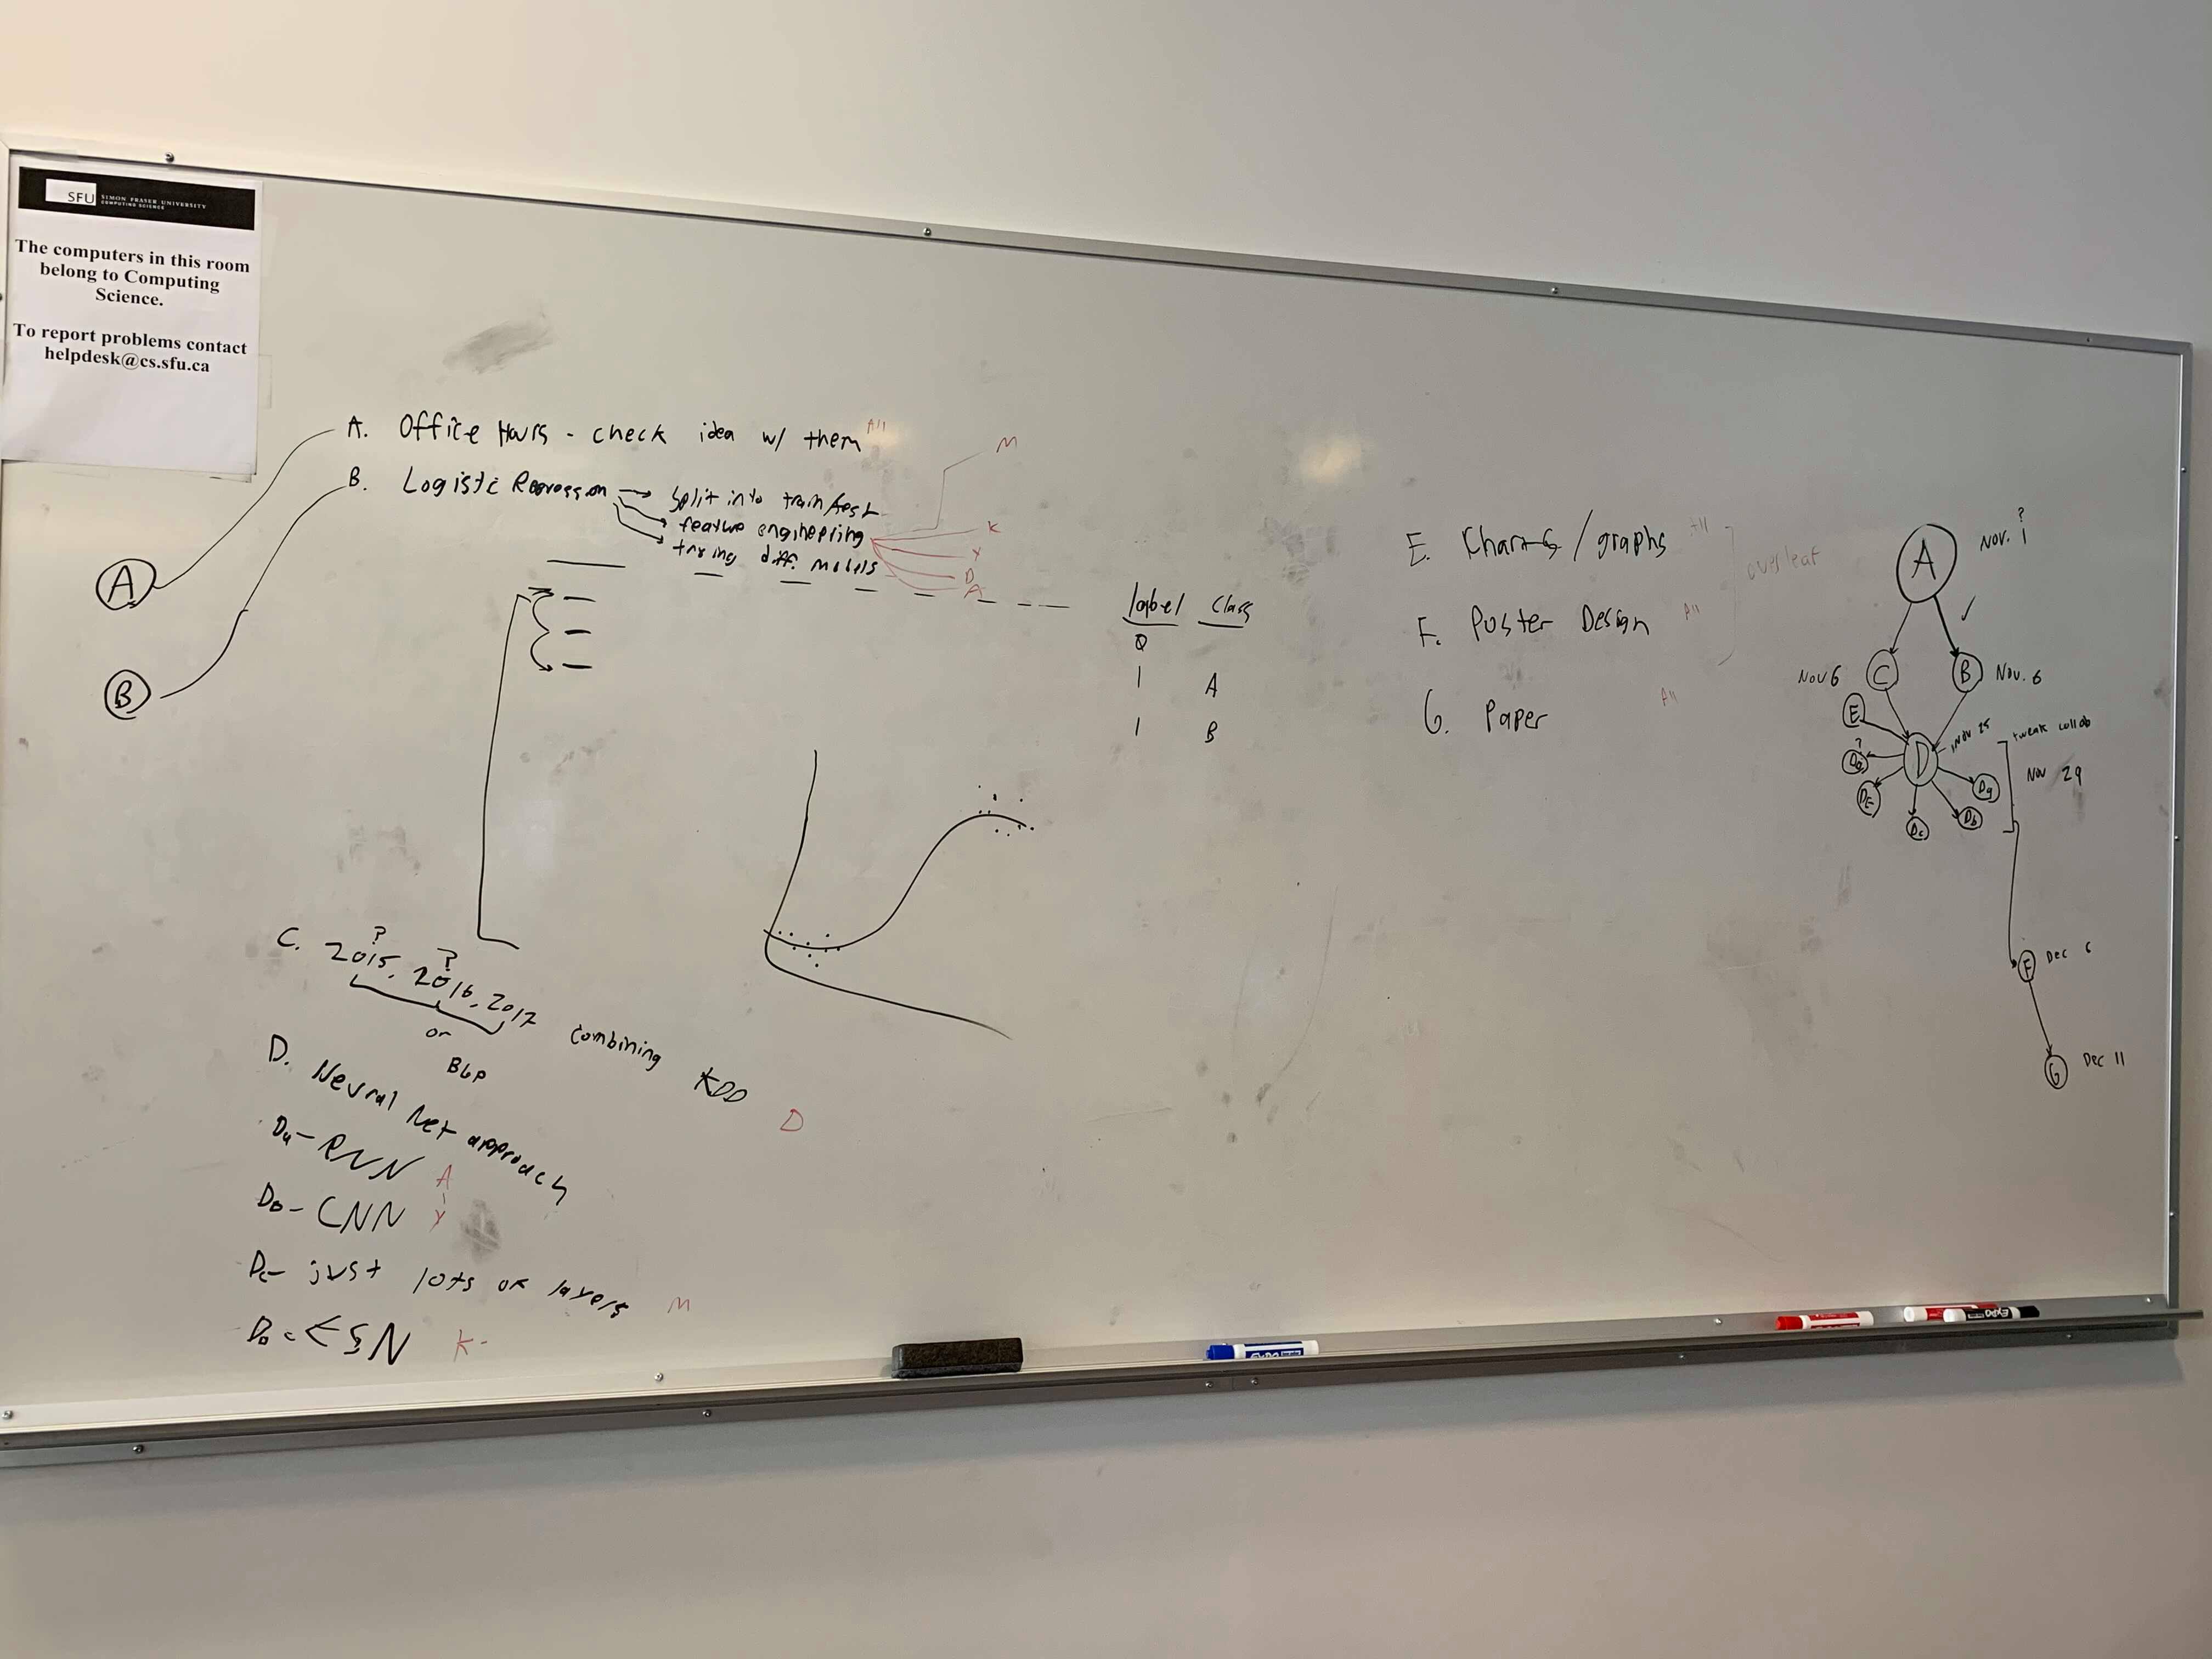 SFU SIMON FRASER UNIVERSITY
COMPUTING SCIENCE
The computers in this room
belong to Computing
Science.
To report problems contact
helpdesk@cs.sfu.ca
A. Office Hours - check idea w/ them All
B. Logistic Regression → split into train/test
feature engineering
trying diff. models
M
K
Y
D
A
A
B
label class
0
1 A
1 B
C. 2015, 2016, 2017 combining KDD D
? ?
or
BGP
D. Neural Net approach
Da - RNN A
Db - CNN Y
Dc - just lots of layers M
ESN K
E. Charts/graphs All
F. Poster Design All
G. Paper All
overleaf
A Nov. 1 ?
✓
Nov 6 C B Nov. 6
E
D Nov 25
tweak collab
Nov 29
?
Dc
Db
F Dec 6
G Dec 11
EXPO
EXPO